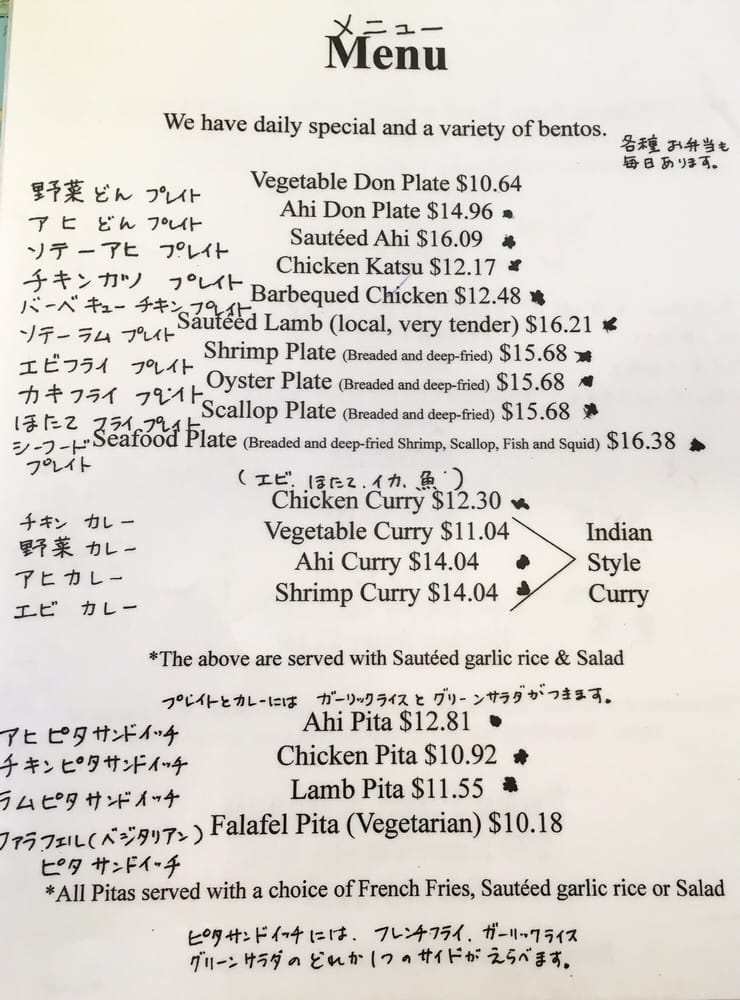 メニュー
Menu
We have daily special and a variety of bentos.
各種 お弁当も
毎日あります。
野菜 どん プレイト Vegetable Don Plate $10.64
アヒ どん プレイト Ahi Don Plate $14.96
ソテーアヒ プレイト Sautéed Ahi $16.09
チキンカツ プレイト Chicken Katsu $12.17
バーベキュー チキン プレイト Barbequed Chicken $12.48
ソテーラム プレイト Sautéed Lamb (local, very tender) $16.21
エビフライ プレイト Shrimp Plate (Breaded and deep-fried) $15.68
カキフライ プレイト Oyster Plate (Breaded and deep-fried) $15.68
ほたて フライ プレイト Scallop Plate (Breaded and deep-fried) $15.68
シーフード Seafood Plate (Breaded and deep-fried Shrimp, Scallop, Fish and Squid) $16.38
プレイト
(エビ、ほたて、イカ、魚)
Chicken Curry $12.30
チキン カレー
Vegetable Curry $11.04
野菜 カレー
Ahi Curry $14.04
アヒカレー
Shrimp Curry $14.04
エビ カレー
Indian
Style
Curry
*The above are served with Sautéed garlic rice & Salad
プレイトとカレーには ガーリックライスと グリーンサラダがつきます。
アヒ ピタサンドイッチ Ahi Pita $12.81
チキンピタサンドイッチ Chicken Pita $10.92
ラムピタ サンドイッチ Lamb Pita $11.55
ファラフェル(ベジタリアン) Falafel Pita (Vegetarian) $10.18
ピタ サンドイッチ
*All Pitas served with a choice of French Fries, Sautéed garlic rice or Salad
ピタサンドイッチには、フレンチフライ、ガーリックライス
グリーンサラダの どれか1つの サイドが えらべます。